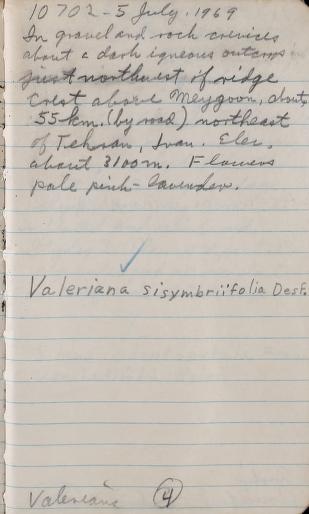 10702 - 5 July, 1969
In gravel and rock crevices
about a dark igneous outcrop
just northwest of ridge
crest above Meygoon, about
55 km. (by road) northeast
of Tehran, Iran. Elev.
about 3100 m. Flowers
pale pink-lavender.
Valeriana sisymbriifolia Desf.
Valeriana 4